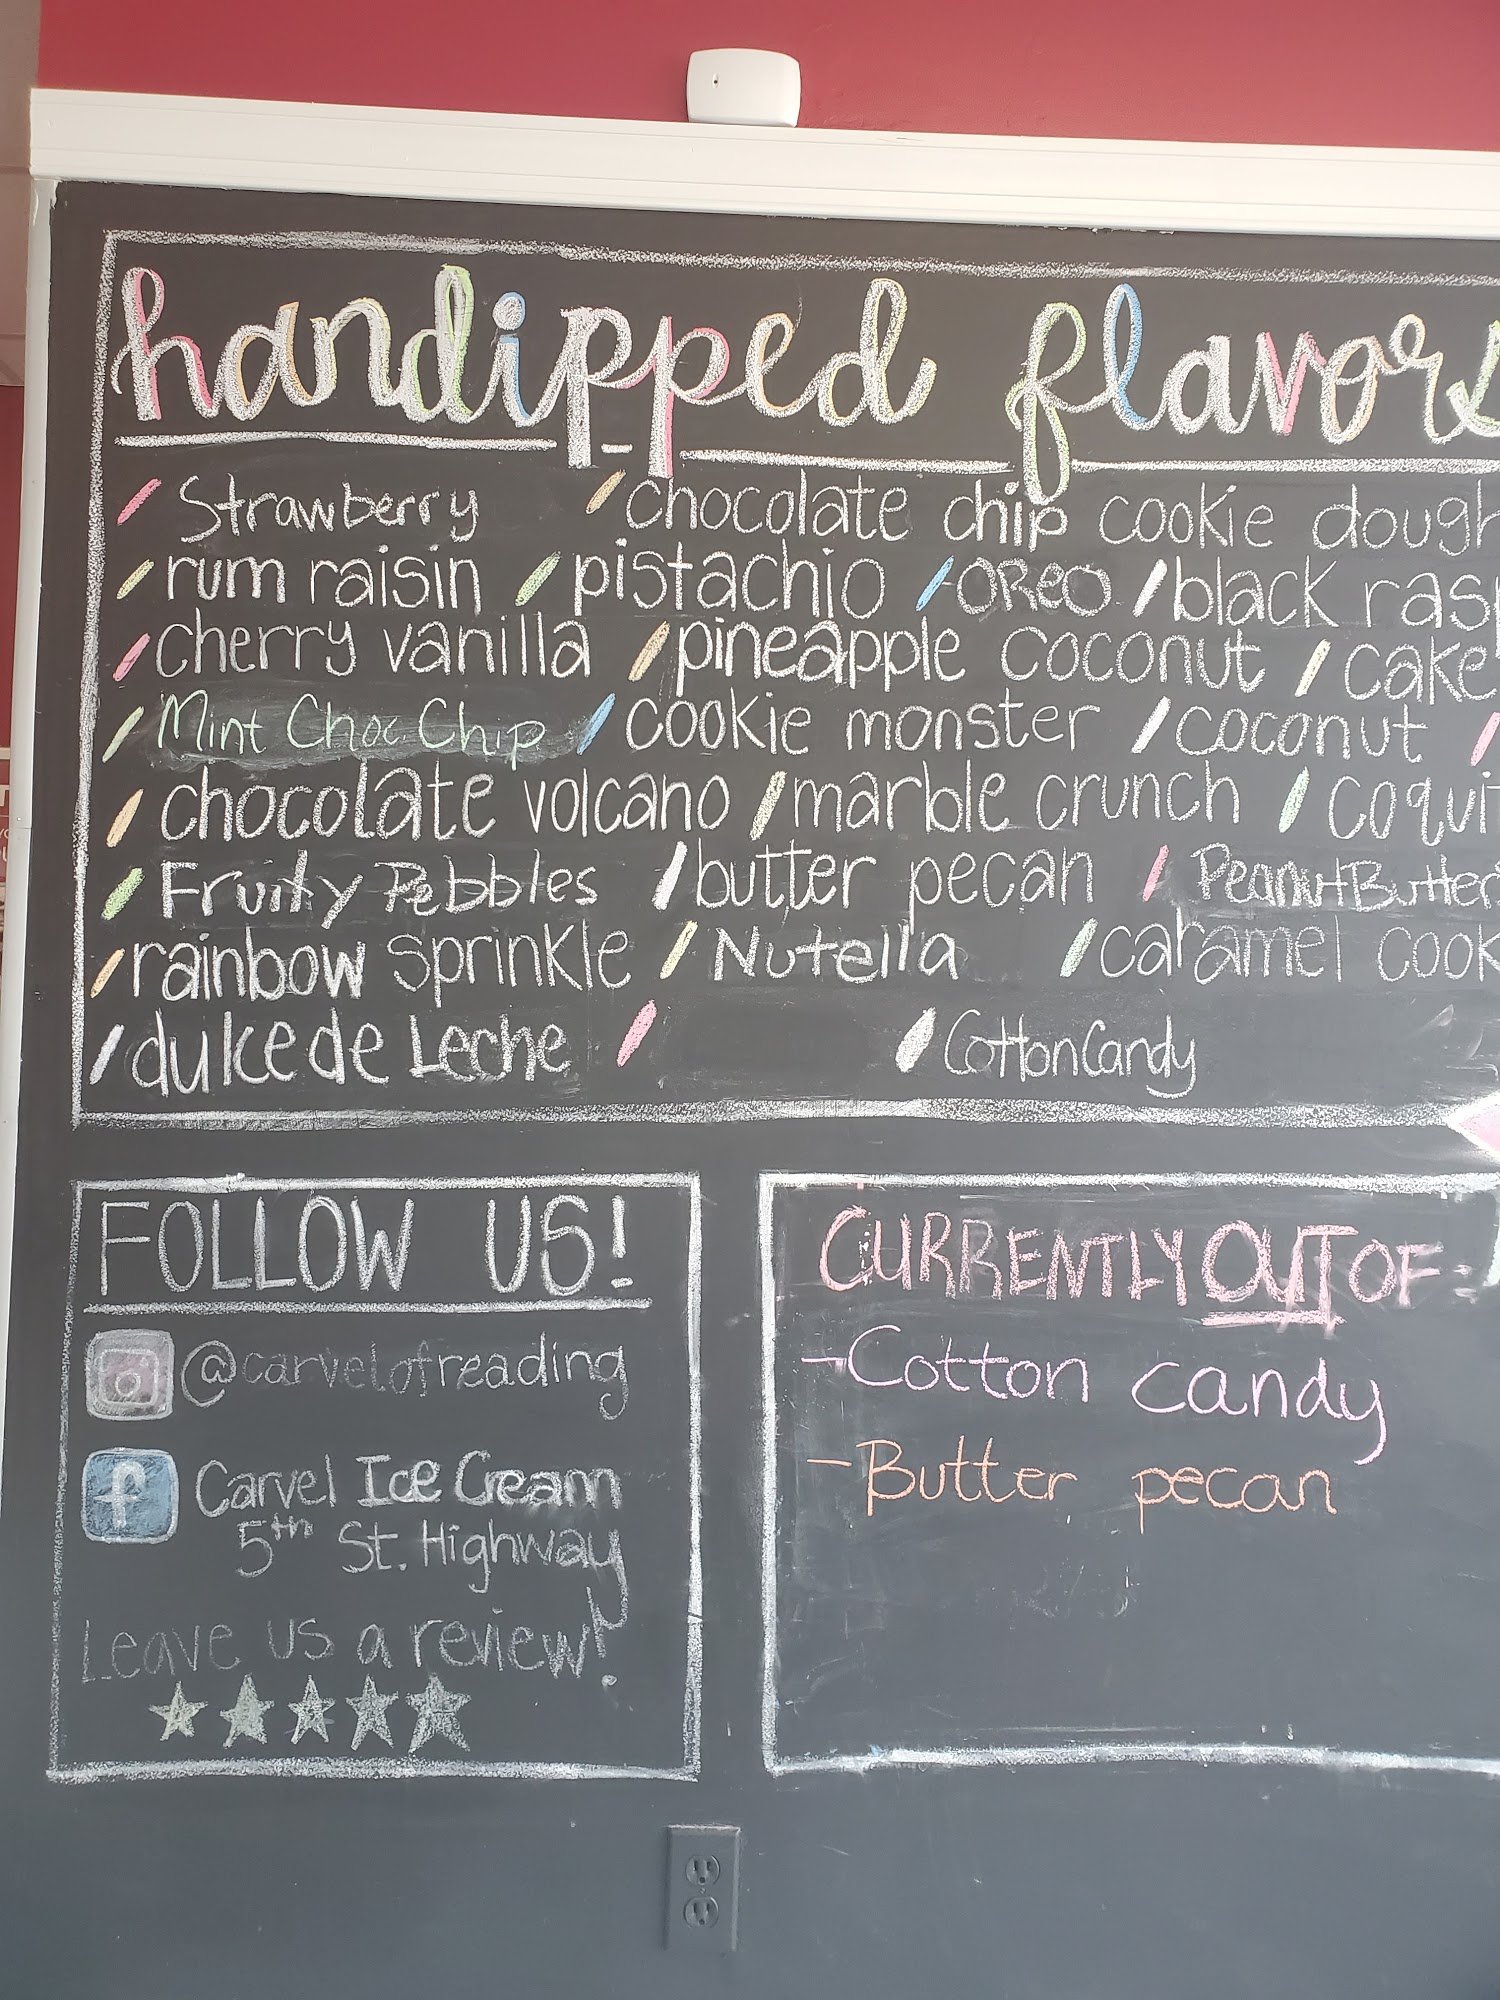 handipped flavors
Strawberry chocolate chip cookie dough
rum raisin pistachio OREO black rasp
cherry vanilla pineapple coconut cake
Mint Choc. Chip cookie monster coconut
chocolate volcano marble crunch coquit
Fruity Pebbles butter pecan Peanut Butter
rainbow sprinkle Nutella caramel cook
dulce de Leche Cotton Candy
FOLLOW US!
@carvelofreading
Carvel Ice Cream
5th St. Highway
Leave us a review!
CURRENTLY OUT OF:
-Cotton candy
-Butter pecan